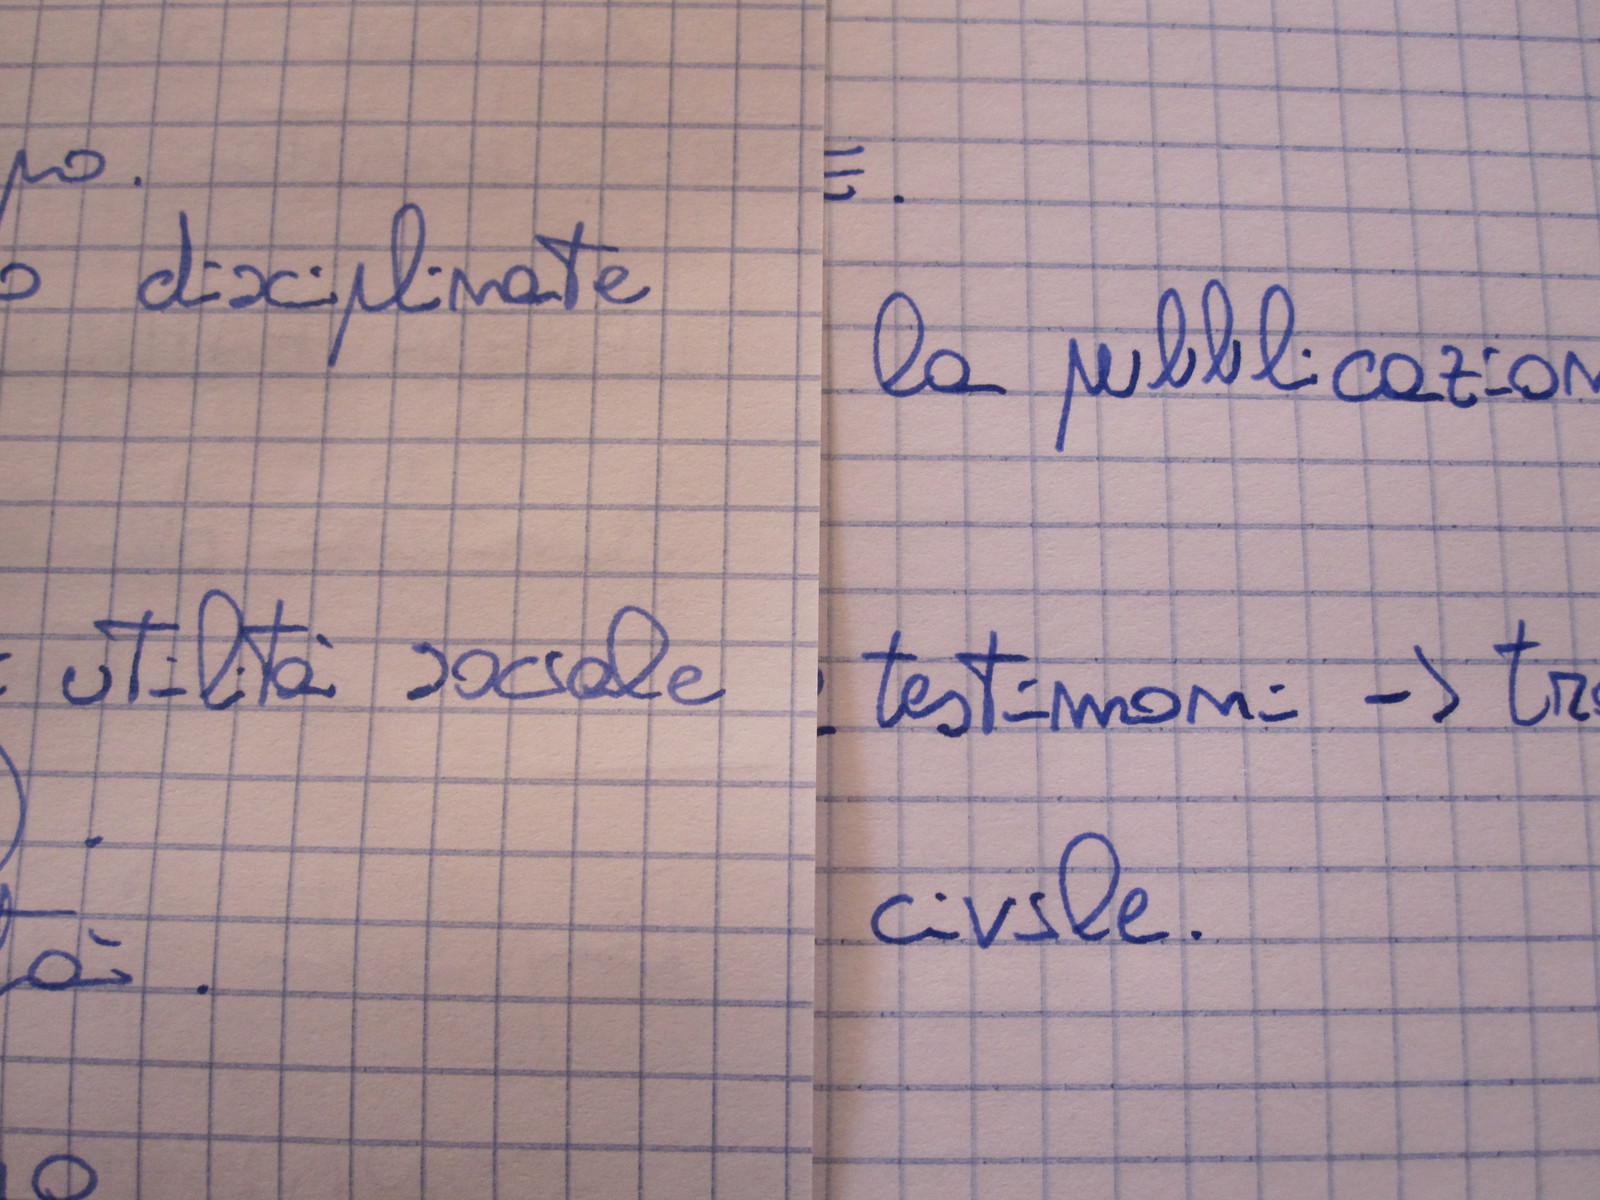 po.
o disciplinate
= utilità sociale
tà.
no
E.
la pubblicazion
testimoni -> tra
civile.